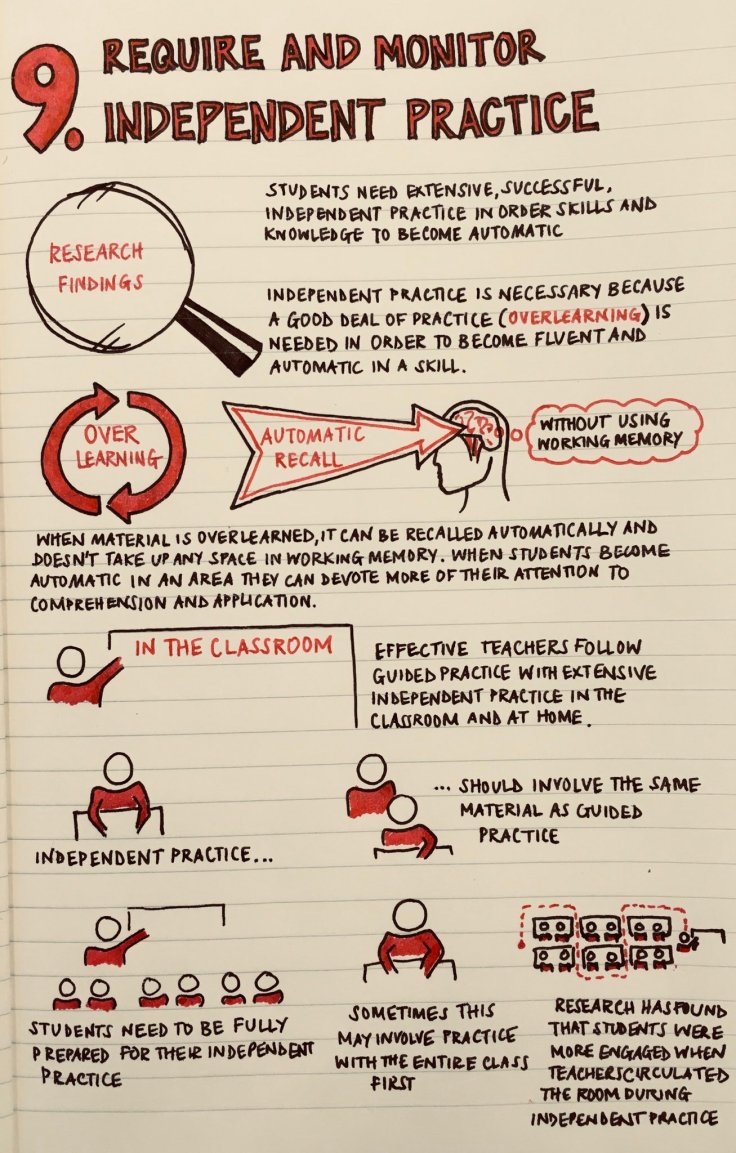 9.
REQUIRE AND MONITOR
INDEPENDENT PRACTICE
RESEARCH
FINDINGS
STUDENTS NEED EXTENSIVE, SUCCESSFUL,
INDEPENDENT PRACTICE IN ORDER SKILLS AND
KNOWLEDGE TO BECOME AUTOMATIC
INDEPENDENT PRACTICE IS NECESSARY BECAUSE
A GOOD DEAL OF PRACTICE (OVERLEARNING) IS
NEEDED IN ORDER TO BECOME FLUENT AND
AUTOMATIC IN A SKILL.
OVER
LEARNING
AUTOMATIC
RECALL
WITHOUT USING
WORKING MEMORY
WHEN MATERIAL IS OVERLEARNED, IT CAN BE RECALLED AUTOMATICALLY AND
DOESN'T TAKE UP ANY SPACE IN WORKING MEMORY. WHEN STUDENTS BECOME
AUTOMATIC IN AN AREA THEY CAN DEVOTE MORE OF THEIR ATTENTION TO
COMPREHENSION AND APPLICATION.
IN THE CLASSROOM
EFFECTIVE TEACHERS FOLLOW
GUIDED PRACTICE WITH EXTENSIVE
INDEPENDENT PRACTICE IN THE
CLASSROOM AND AT HOME.
INDEPENDENT PRACTICE...
... SHOULD INVOLVE THE SAME
MATERIAL AS GUIDED
PRACTICE
STUDENTS NEED TO BE FULLY
PREPARED FOR THEIR INDEPENDENT
PRACTICE
SOMETIMES THIS
MAY INVOLVE PRACTICE
WITH THE ENTIRE CLASS
FIRST
RESEARCH HAS FOUND
THAT STUDENTS WERE
MORE ENGAGED WHEN
TEACHERS CIRCULATED
THE ROOM DURING
INDEPENDENT PRACTICE